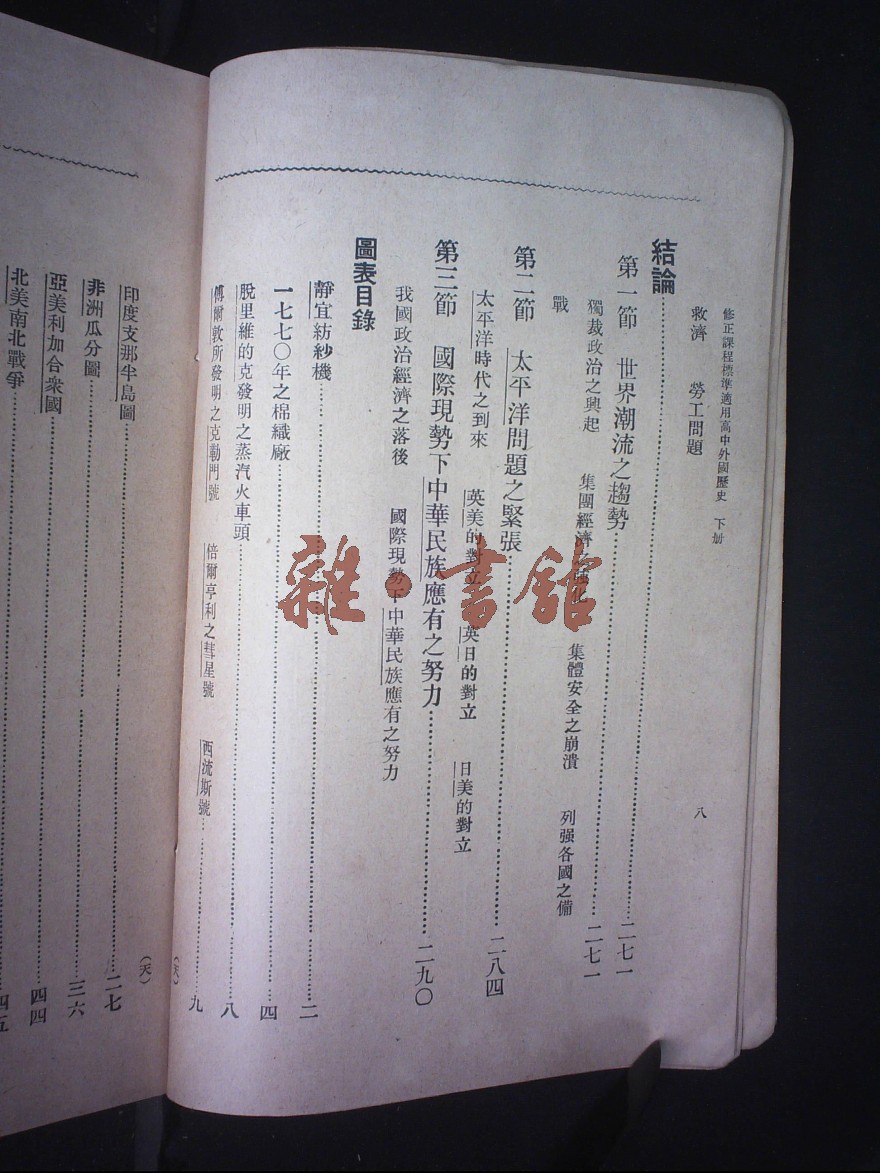 修正課程標準適用高中外國歷史　下册
八
救濟　勞工問題
結論……二七一
第一節　世界潮流之趨勢……二七一
獨裁政治之興起　集團經濟之强化　集體安全之崩潰　列强各國之備
戰
第二節　太平洋問題之緊張……二八四
太平洋時代之到來　英美的對立　英日的對立　日美的對立
第三節　國際現勢下中華民族應有之努力……二九〇
我國政治經濟之落後　國際現勢下中華民族應有之努力
圖表目錄
靜宜紡紗機……二
一七七〇年之棉織廠……四
脫里維的克發明之蒸汽火車頭……八
傅爾敦所發明之克勒門號　倍爾亨利之彗星號　西流斯號……九
(天)
印度支那半島圖……二七
(天)
非洲瓜分圖……三六
亞美利加合衆國……四四
北美南北戰爭……四五
雜·書館